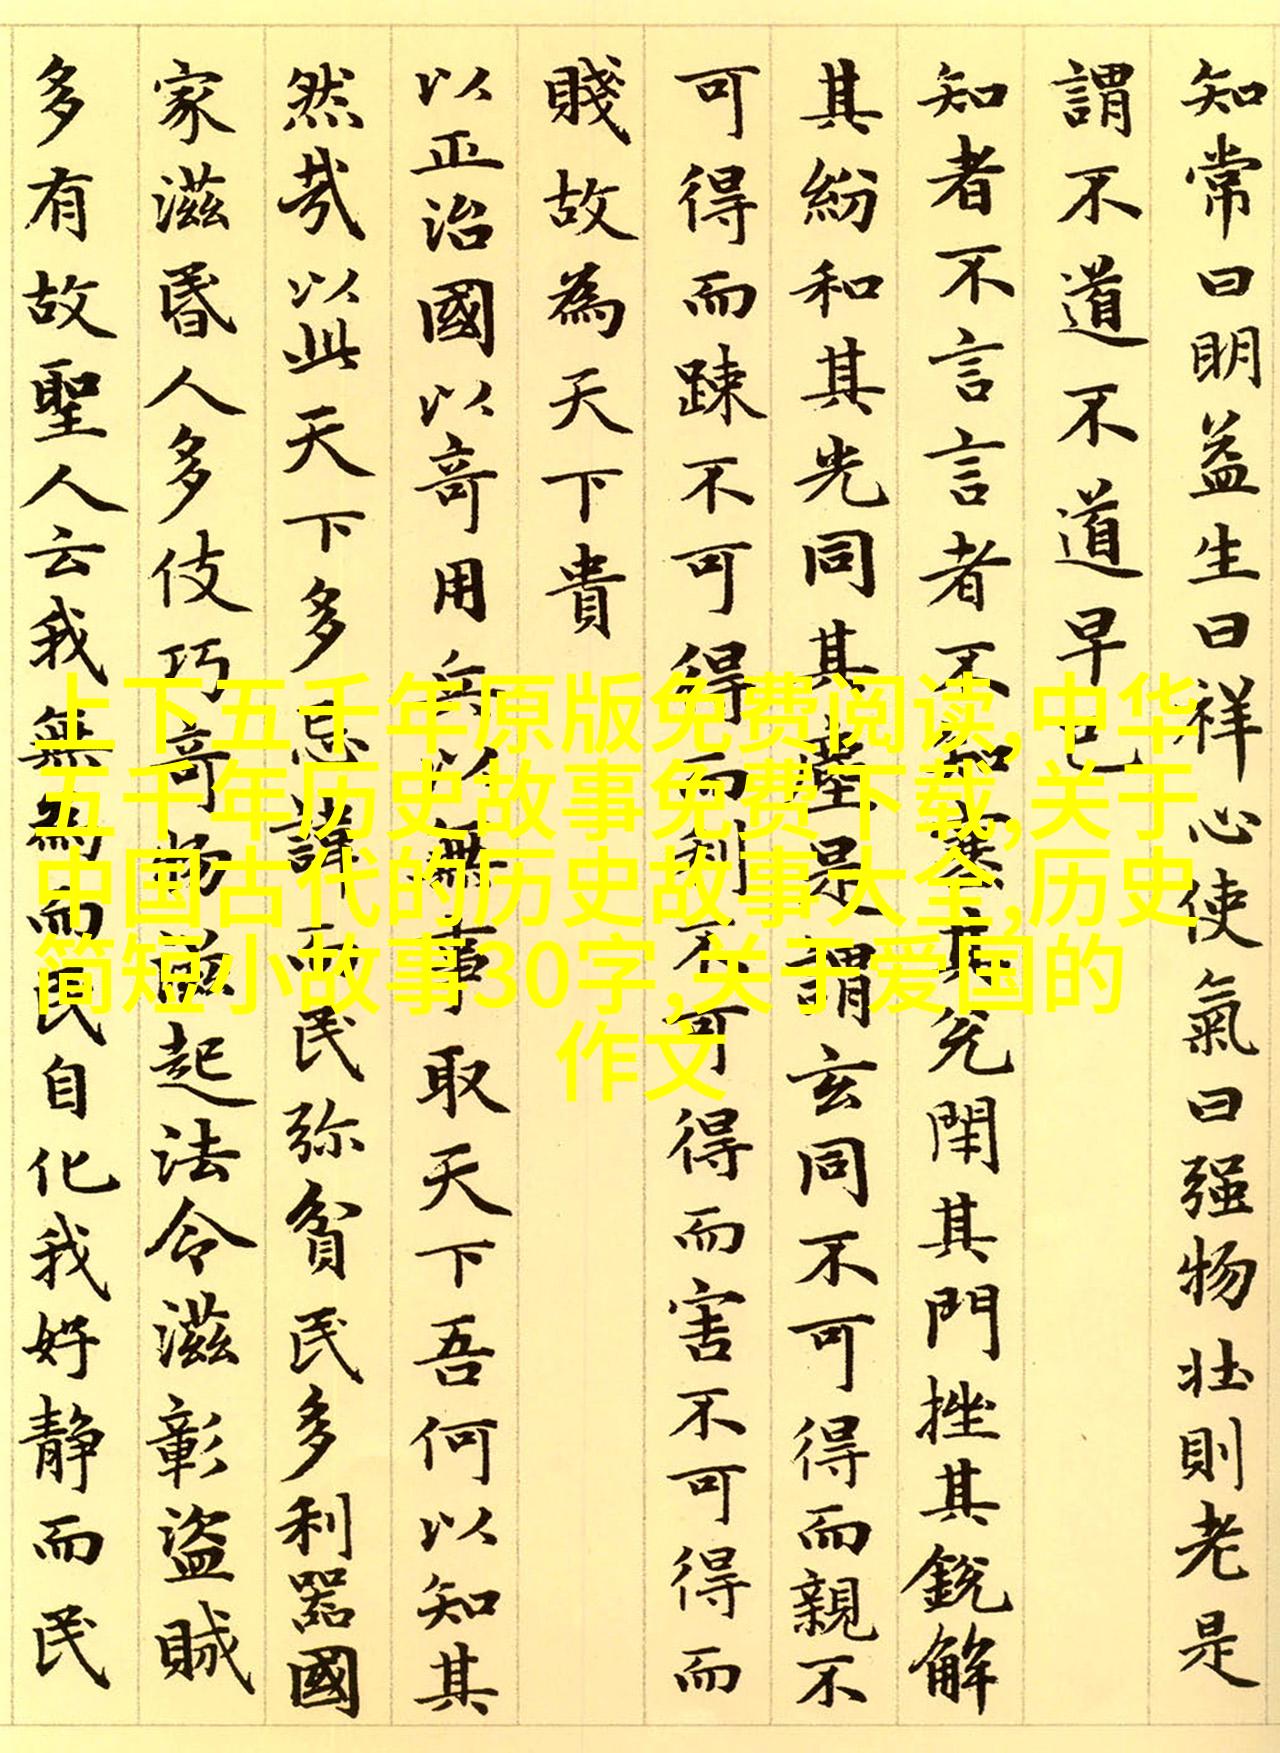 知常曰明益生曰祥心使氣曰强物壮則老是
謂不道不道早已
知者不言言者不知塞其兌閇其門挫其銳解
其紛和其光同其塵是謂玄同不可得而親不
可得而踈不可得而利不可得而害不可得而
賤故為天下貴
以正治國以竒用兵以無事取天下吾何以知其
然㢤以此天下多忌諱而民弥貧民多利器國
家滋昬人多伎巧竒物滋起法令滋彰盜賊
多有故聖人云我無為而民自化我好静而民
上下五千年原版免费阅读,中华
五千年历史故事免费下载,关于
中国古代的历史故事大全,历史
简短小故事30字,关于爱国的
作文